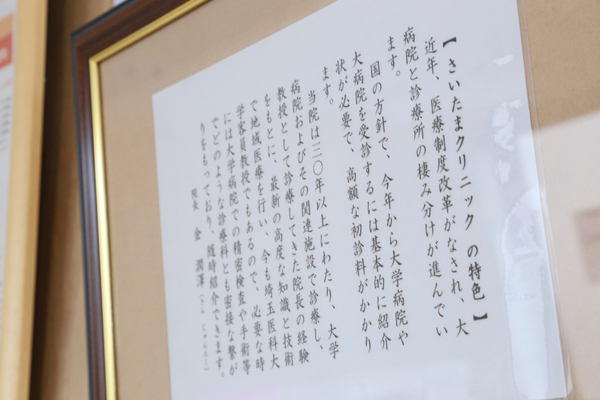 【 さいたまクリニック の特色 】
近年、医療制度改革がなされ、大
病院と診療所の棲み分けが進んでい
ます。
国の方針で、今年から大学病院や
大病院を受診するには基本的に紹介
状が必要で、高額な初診料がかかり
ます。
当院は三〇年以上にわたり、大学
病院およびその関連施設で診療し、
教授として診療してきた院長の経験
をもとに、最新の高度な知識と技術
で地域医療を行い、今も埼玉医科大
学客員教授でもあるので、必要な時
には大学病院での精密検査や手術等
でどのような診療科とも密接な繋が
りをもっており、随時紹介できます。
院長 金 潤澤